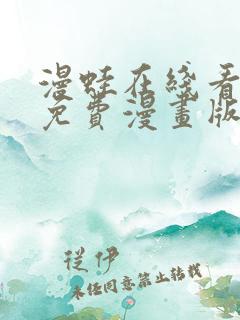 漫蛙在綫看
免費漫畫版
從伊
未经同意禁止转载